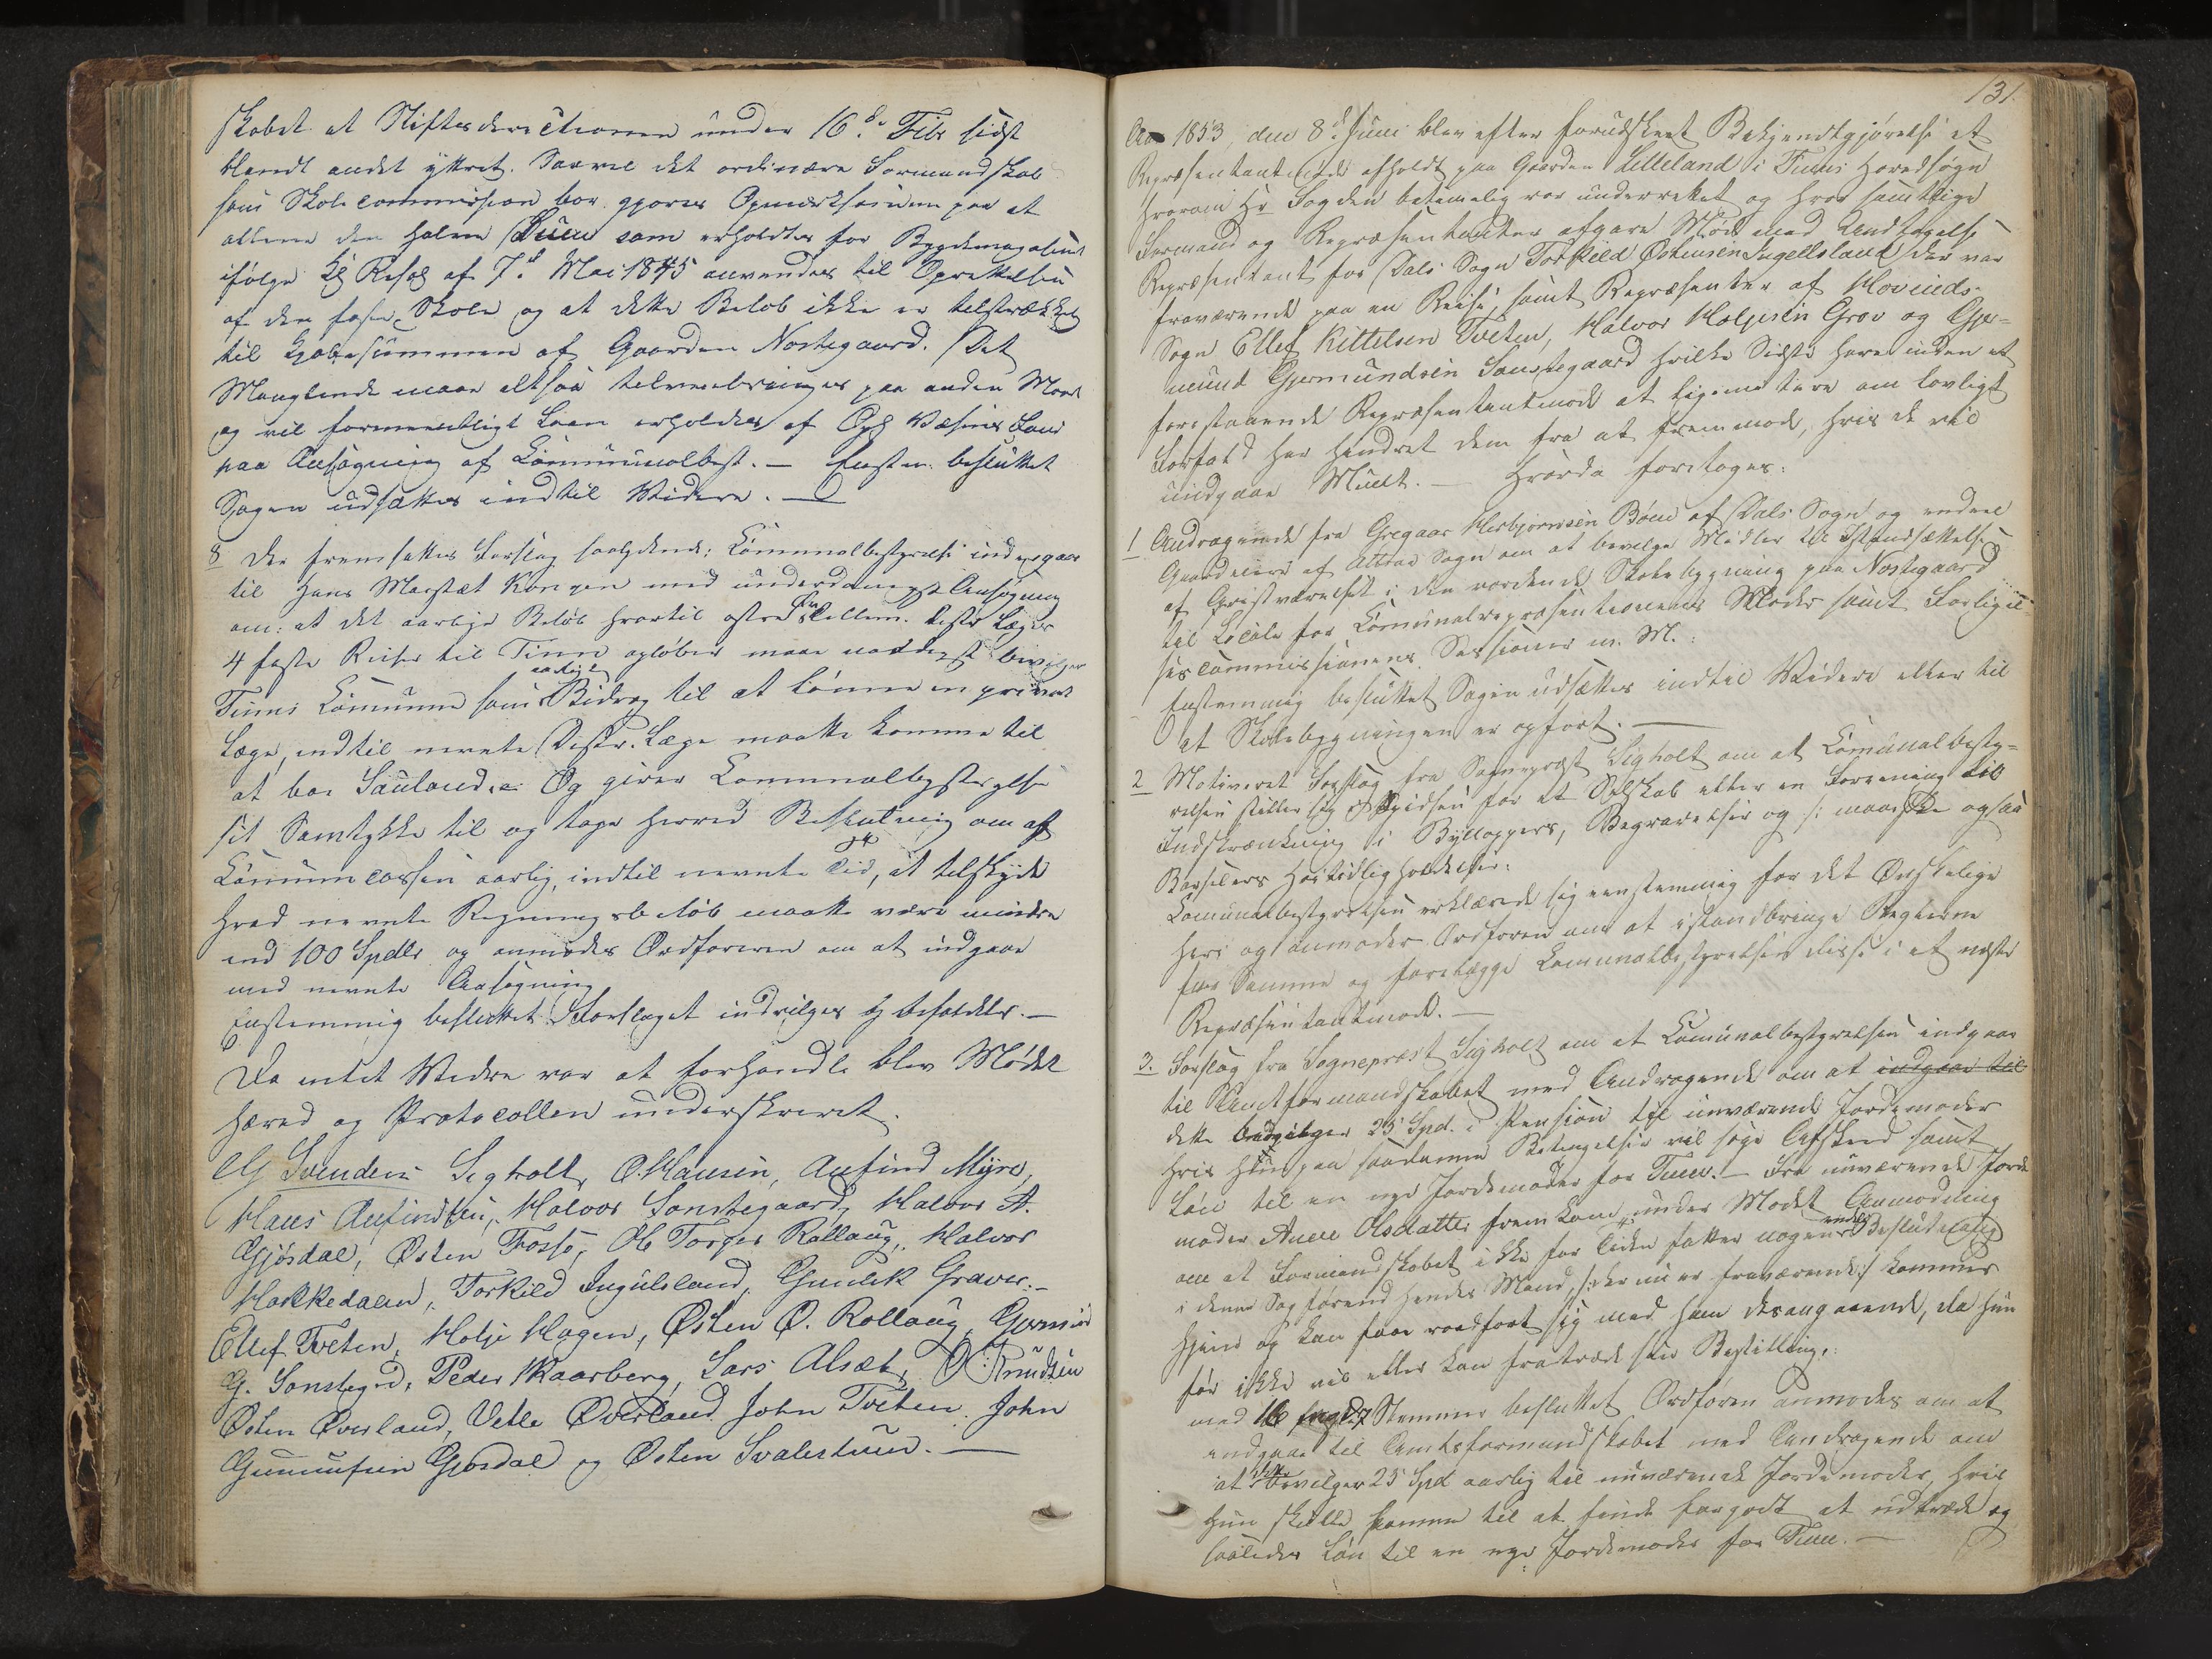 skabet at Stiftsdirectionen under 16de Febr sidst
blandt andet yttret. Saavel det ordinære Formandskab
som Skolecommission bør gjøres Opmærksomme paa at
allene den halve Sum som erholdtes for Bygdemagasinet
ifølge Kgl Resol af 7de Mai 1845 anvendes til Oprettelsen
af den faste Skole og at dette Beløb ikke er tilstrækkelig
til Kjøbesummen af Gaarden Nordegaard. Det
Manglende maa altsaa tilveiebringes paa anden Maade
og vil formeentligt Laan erholdes af Opl Væsens Fond
paa Ansøgning af Communalbest. — Enstem. besluttet
Sagen udsættes indtil Videre. —
8 Der fremsattes Forslag saalydende: Communalbestyrelse indgaar
til Hans Majestæt Kongen med underdanigst Ansøgning
om: at det aarlige Beløb hvortil østre Tellem. Distr Læges
4 faste Reiser til Tinn opløber maa naadigst bevilges
Tinns Commune som aarligt Bidrag til at lønne en privat
Læge, indtil nevnte Distr. Læge maatte komme til
at boe Sauland. Og giver Communalbestyrelse
sit Samtykke til og tage herved Beslutning om at
Communecassen aarlig, indtil nevnte Tid, at tilskyde
hvad nevnte Regningsbeløb maatte være mindre
end 100 Spdlr og anmodes Ordføreren om at indgaae
med nevnte Ansøgning
Enstemmig besluttet Forslaget indvilges og befordres. —
Da intet Videre var at forhandle blev Mødet
hævet og Protocollen underskrevet.
G Svendsen Sigholt, O. Hansen, Anfind Myre,
Hans Anfindsen, Halvor Sønstegaard, Halvor A.
Gjøsdal, Østen Fosso, Ole Torger Rollaug, Halvor
Hakkedalen, Torkild Ingulsland, Gunlek Graver. —
Ellef Tveten, Holje Hagen, Østen O. Rollaug, Germund
G. Sønstegrd, Peder Skaarberg, Lars Alsæt, O Knudsen
Østen Øverland, Vetle Øverland John Tveten John
Gunnufsen Gjøsdal og Østen Svalestuen. —
131.
Aar 1853 den 8de Juni blev efter forudskeet Bekjendtgjørelse et
Repræsentantmøde afholdt paa Gaarden Lilleland i Tinns Hovedsogn
hvorom Hr Fogden betimelig var underrettet og hvor samtlige
Formænd og Repræsentanter afgave Møde med Undtagelse
Repræsentant for Dals Sogn Torkild Østensen Ingellsland der var
fraværende paa en Reise, samt Repræsenter af Hovinds-
Sogn Ellef Kittelsen Tveten, Halvor Holjesen Grov og Gjer=
mund Gjermundsen Sønstegaard hvilke Sidste have inden et
forestaaende Repræsentantmøde at ligimetere om lovligt
Forfald har hindret dem fra at fremmøde, hvis de vil
undgaae Mulct. — Hvorda foretoges:
1 Andragende fra Gregaar Herbjørnsen Bøen af Dals Sogn og endeel
Gaardeiere af Attraa Sogn om at bevilge Midler til Istandsættelse
af Gjestværelset i den vordende Skolebygning paa Nordegaard
til Locale for Communalrepræsentionens Møder samt Forligel=
sescommissionens Sessioner m. M.:
Enstemmig besluttet Sagen udsættes indtil Videre eller til
at Skolebygningen er opført. —
2 Motiveret Forslag fra Sognepræst Sigholt om at Communalbesty=
relsen stiller sig i Spidsen for et Selskab eller en Forening til
Indskrænkning i Bylloppers, Begravelser og /: maaske ogsaa
Barselers Høitidligholdelser:
Communalbestyrelsen erklærede sig eenstemmig for det Ønskelige
heri og anmoder Ordføren om at istandbringe Reglerne
for Samme og forelægge Communalbestyrelsen disse i et næste
Repræsentantmøde. —
3. Forslag fra Sognepræst Sigholt om at Communalbestyrelsen indgaar
til Amtformandskabet med Andragende om at indgaae til
dette bevilger 25 Spd. i Pension til nuværende Jordemoder
hvis Hun paa saadanne Betingelser vil søge Afsked samt
Løn til en nye Jordemoder for Tinn. — Fra nuværende Jorde
moder Anne Olsdatter fremkom under Mødet Anmodning
om at Formandskabet ikke for Tiden fatter nogen endelig Beslutning
i denne Sag førend hendes Mand, /: der nu er fraværende :/ kommer
hjem og kan faae raadført sig med ham desangaaende, da hun
før ikke vil eller kan fratræde sin Bestilling.:
med 16 mod 7 Stemmer besluttet Ordføren anmodes om at
indgaae til Amtsformandskabet med Andragende om
at dette bevilger 25 Spd aarlig til nuværende Jordemoder, hvis
hun skulle komme til at finde forgodt at udtræde og
saaledes Løn til en nye Jordemoder for Tinn. —